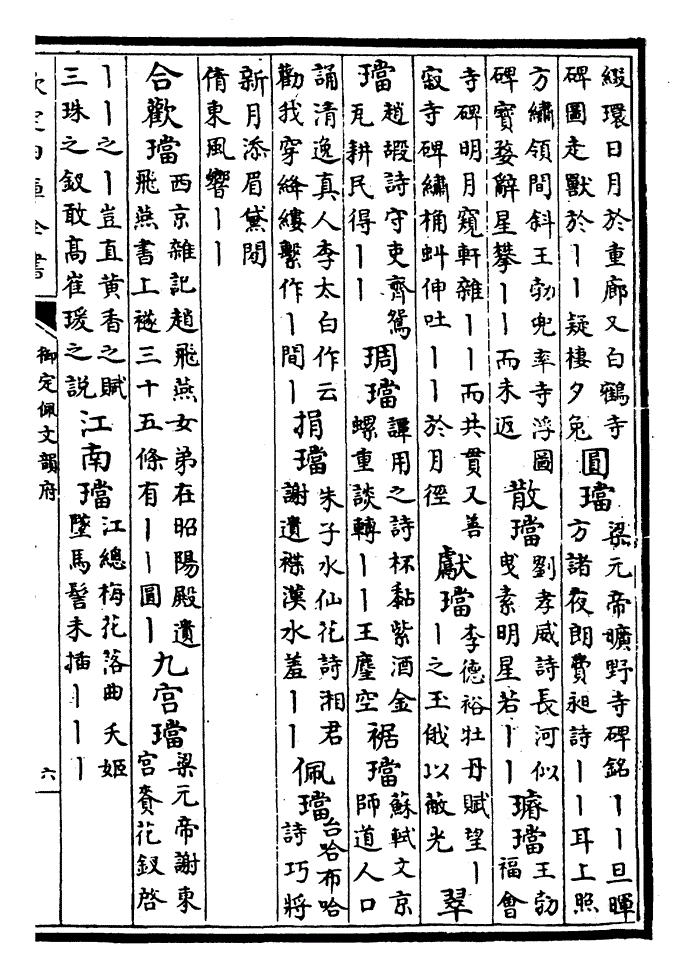 綴環日月於重廊又白鶴寺
碑圖走獸於丨丨疑棲夕兔
圓璫
梁元帝曠野寺碑銘丨丨旦暉
方諸夜朗費昶詩丨丨耳上照
方繡領間斜王勃兜率寺浮圖
碑寶婺辭星攀丨丨而未返
散璫
劉孝威詩長河似
曳素明星若丨丨
璿璫
王勃
福會
寺碑明月窺軒雜丨丨而共貫又善
寂寺碑繡桷虯伸吐丨丨於月徑
獻璫
李德裕牡丹賦望丨
丨之玉俄以蔽光
翠
璫
趙嘏詩守吏齊鴛
瓦耕民得丨丨
琱璫
譚用之詩杯黏紫酒金
螺重談轉丨丨王麈空
裾璫
蘇軾文京
師道人口
誦清逸真人李太白作云
勸我穿絳縷繫作丨間丨
捐璫
朱子水仙花詩湘君
謝遺褋漢水羞丨丨
佩璫
台哈布哈
詩巧將
新月添眉黛閒
倩東風響丨丨
合歡璫
西京雜記趙飛燕女弟在昭陽殿遺
飛燕書上襚三十五條有丨丨圓丨
九宮璫
梁元帝謝東
宮賚花釵啓
丨丨之丨豈直黄香之賦
三珠之釵敢髙崔瑗之説
江南璫
江總梅花落曲夭姬
墜馬髻未插丨丨丨
欽定四庫全書
御定佩文韻府
六